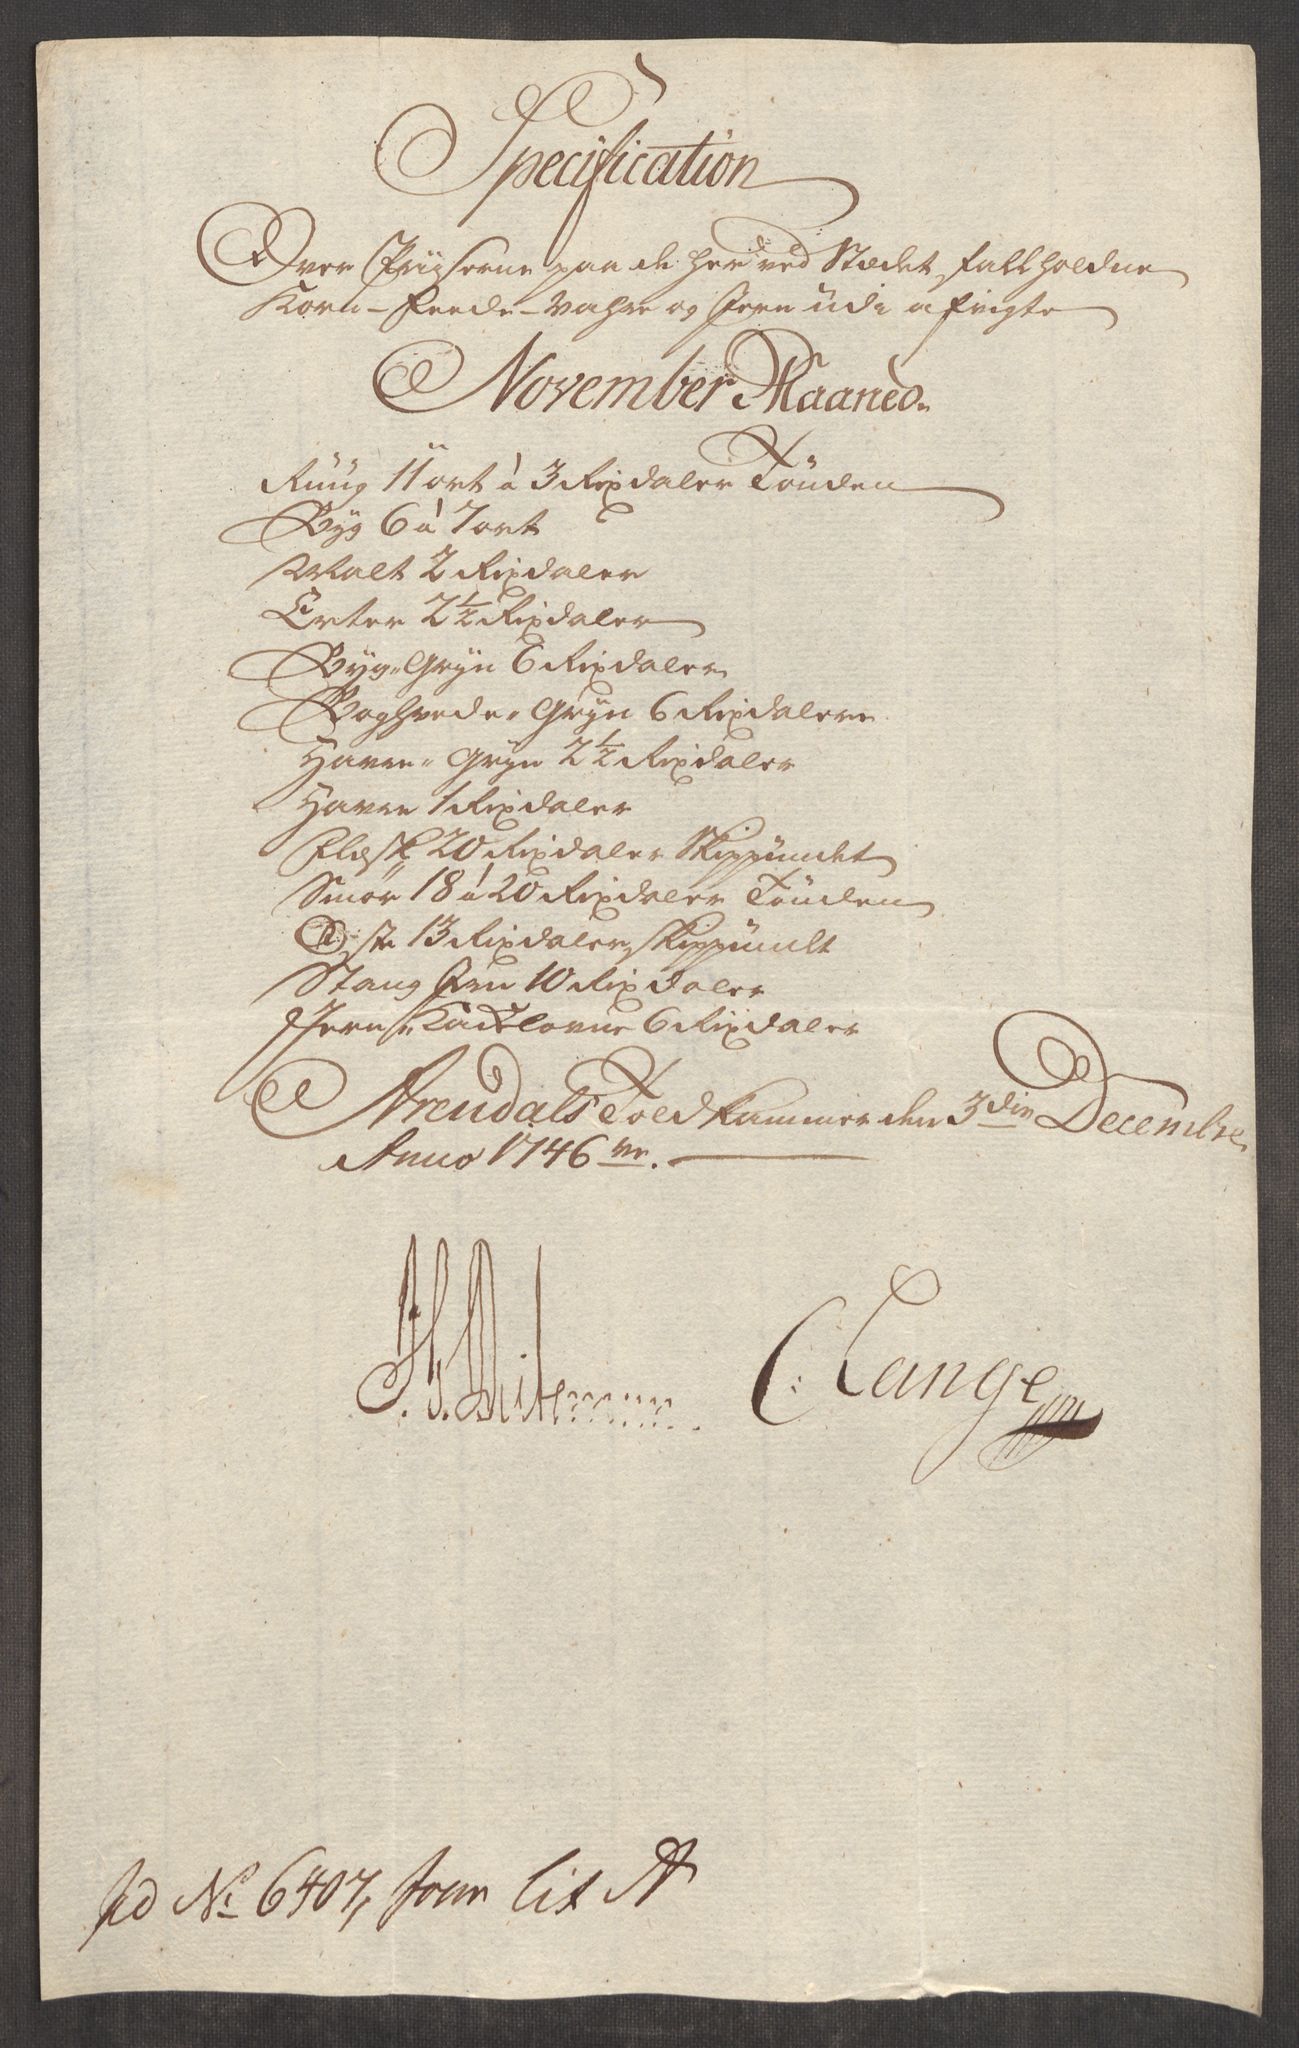 Specification
Over Priiserne paa de her ved Stædet fallholdne
Korn- Feede- Vahre og Jern udi afvigte
November Maaned.
Rüüg 11 ort à 3 Rixdaler Tönden
Byg 6 à 7 ort
Malt 2 Rixdaler
Erter 2 1/2 Rixdaler
Byg-Gryn 6 Rixdaler
Boghvede-Gryn 6 Rixdalere
Havre-Gryn 2 1/2 Rixdaler
Havre 1 Rixdaler
Flesk 20 Rixdaler Skippündet
Smör 18 à 20 Rixdaler Tönden
Oste 13 Rixdaler Skippündt
Stang Jern 10 Rixdaler
Jern-Kackelovne 6 Rixdaler
Arendals Toldkammer den 3die Decembre
Anno 1746
C: Lange
No 6407, Lit A